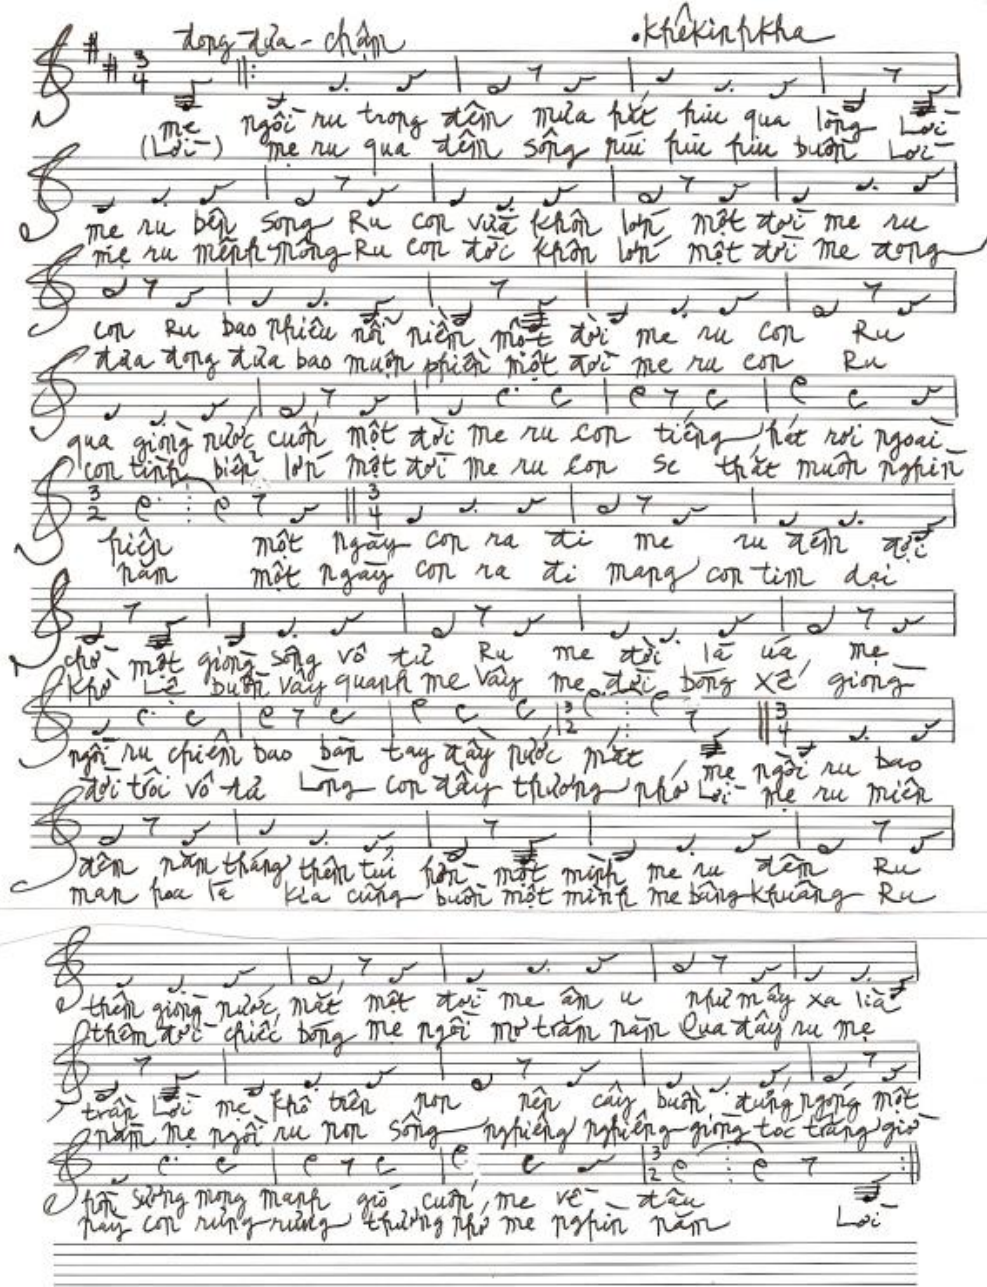 đong đưa - chậm
.khêkinhkha
3 4
mẹ ngồi ru trong đêm mưa hắt hiu qua lòng Lời
(Lời) mẹ ru qua đêm sông hiu hiu buồn Lời
mẹ ru bên sông Ru con vừa khôn lớn một đời mẹ ru
mẹ ru mênh mông Ru con đốc khôn lớn một đời mẹ đong
con Ru bao nhiêu nỗi niềm một đời mẹ ru con Ru
đưa đong đưa bao muộn phiền một đời mẹ ru con Ru
qua giòng nước cuốn một đời mẹ ru con tiếng hát rơi ngoài
con tình biển lớn một đời mẹ ru con se thắt muôn nghìn
3 2 3 4
hiên một ngày con ra đi mẹ ru đêm đợi
năm một ngày con ra đi mang con tim dại
chờ một giòng sông vô tư Ru mẹ đời lá úa mẹ
khờ Lê buồn vây quanh mẹ vây mẹ đời bóng xế giòng
3 2 3 4
ngồi ru chiêm bao bàn tay đầy nước mắt mẹ ngồi ru bao
đời trôi vô tả Lòng con đầy thương nhớ Lời mẹ ru miên
đêm năm tháng thêm tủi hờn một mình mẹ ru đêm Ru
man hoa lá kia cũng buồn một mình mẹ bâng khuâng Ru
thêm giòng nước mắt một đời mẹ âm u như mây xa lìa
thêm đời chiếc bóng mẹ ngồi mơ trăm năm Qua đây ru mẹ
trần Lời mẹ khô trên non nên cây buồn đứng ngóng một
năm mẹ ngồi ru non sông nghiêng nghiêng giòng tóc trắng giờ
3 2
hồn sương mong manh gió cuốn mẹ về đâu
này con rưng rưng thương nhớ mẹ nghìn năm Lời